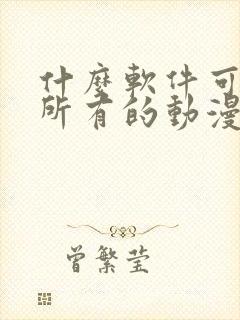 什麼軟件可
所有的動漫
曾繁莹